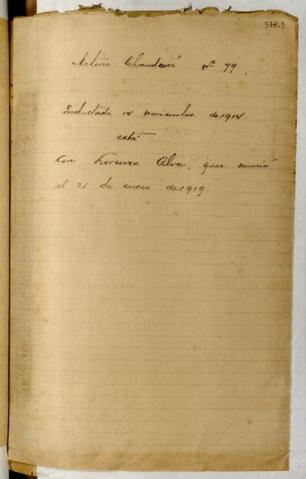 Arturo Chauderi nº 79.
Inductada 14 noviembre de 1914
está
con Lorenza Alva, que murió
el 21 de enero de 1919.